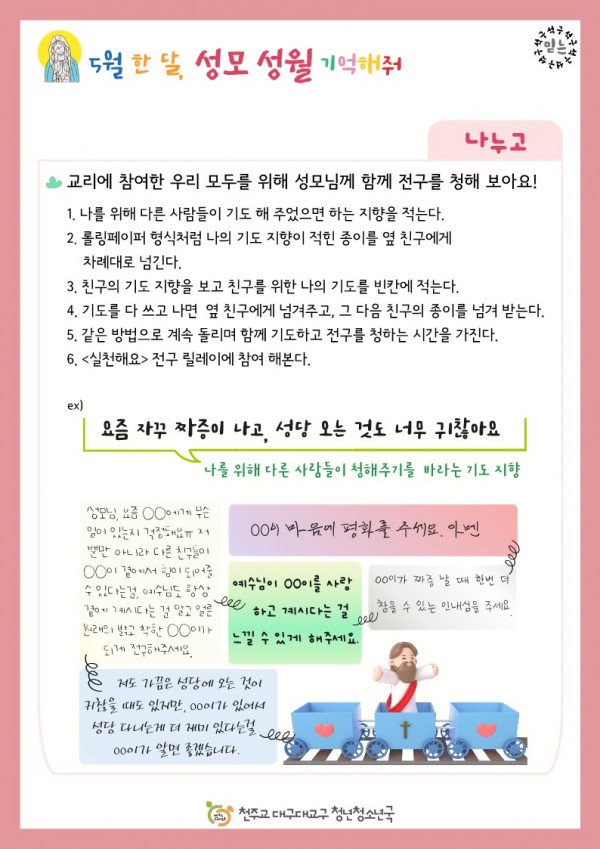 5월 한 달, 성모 성월 기억해줘
믿는
나누고
교리에 참여한 우리 모두를 위해 성모님께 함께 전구를 청해 보아요!
1. 나를 위해 다른 사람들이 기도 해 주었으면 하는 지향을 적는다.
2. 롤링페이퍼 형식처럼 나의 기도 지향이 적힌 종이를 옆 친구에게
차례대로 넘긴다.
3. 친구의 기도 지향을 보고 친구를 위한 나의 기도를 빈칸에 적는다.
4. 기도를 다 쓰고 나면 옆 친구에게 넘겨주고, 그 다음 친구의 종이를 넘겨 받는다.
5. 같은 방법으로 계속 돌리며 함께 기도하고 전구를 청하는 시간을 가진다.
6. <실천해요> 전구 릴레이에 참여 해본다.
ex)
요즘 자꾸 짜증이 나고, 성당 오는 것도 너무 귀찮아요
나를 위해 다른 사람들이 청해주기를 바라는 기도 지향
성모님, 요즘 OO에게 무슨
일이 있는지 걱정돼요ㅠ 저
뿐만 아니라 다른 친구들이
OO이 곁에서 힘이 되어줄
수 있다는걸, 예수님도 항상
곁에 계시다는 걸 알고 얼른
원래의 밝고 착한 OO이가
되게 전구해주세요.
OO의 마음에 평화를 주세요. 아멘
예수님이 OO이를 사랑
하고 계시다는 걸
느낄 수 있게 해주세요.
OO이가 짜증 날 때 한번 더
참을 수 있는 인내심을 주세요.
저도 가끔은 성당에 오는 것이
귀찮을 때도 있지만, OO이가 있어서
성당 다니는게 더 재미 있다는걸
OO이가 알면 좋겠습니다.
천주교 대구대교구 청년청소년국